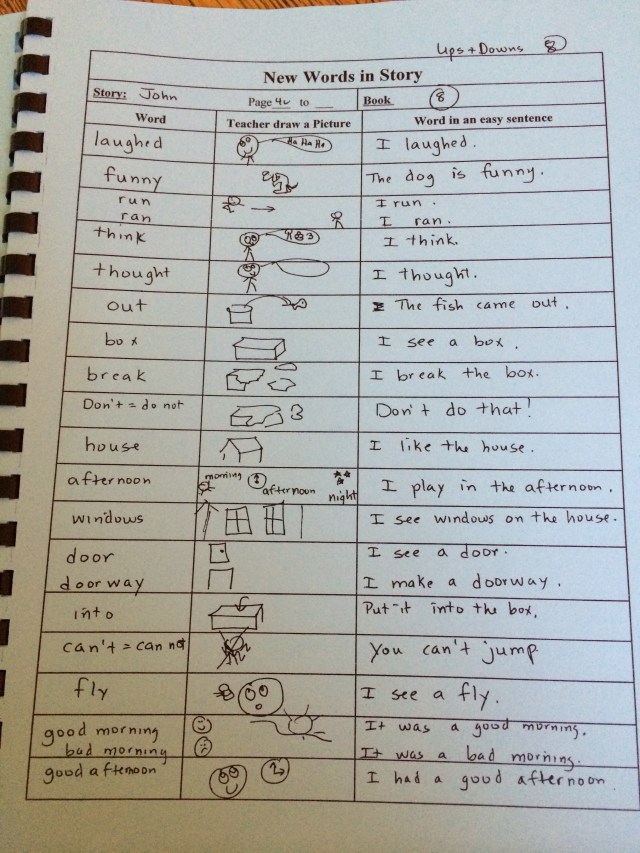 Ups + Downs 8
New Words in Story
Story: John Page 4 to Book 8
Word Teacher draw a Picture Word in an easy sentence
laughed Ha Ha Ha I laughed.
funny The dog is funny.
run I run.
ran I ran.
think I think.
thought I thought.
out The fish came out.
box I see a box.
break I break the box.
Don't = do not Don't do that!
house I like the house.
afternoon morning afternoon night I play in the afternoon.
windows I see windows on the house.
door I see a door.
doorway I make a doorway.
into Put it into the box.
can't = can not You can't jump
fly I see a fly.
good morning It was a good morning.
bad morning It was a bad morning.
good afternoon I had a good afternoon